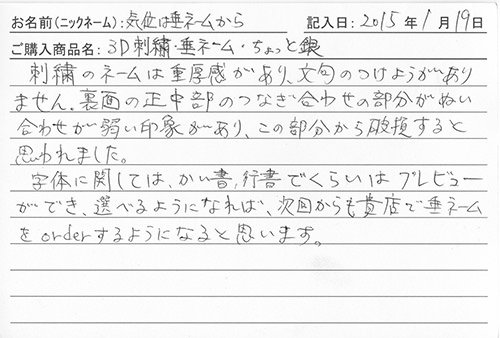 お名前(ニックネーム):気位は垂ネームから 記入日:2015年1月19日
ご購入商品名:3D刺繍・垂ネーム・ちょっと銀
刺繍のネームは重厚感があり、文句のつけようがあり
ません。裏面の正中部のつなぎ合わせの部分がぬい
合わせが弱い印象があり、この部分から破損すると
思われました。
字体に関しては、かい書,行書でくらいはプレビュー
ができ、選べるようになれば、次回からも貴店で垂ネーム
をorderするようになると思います。